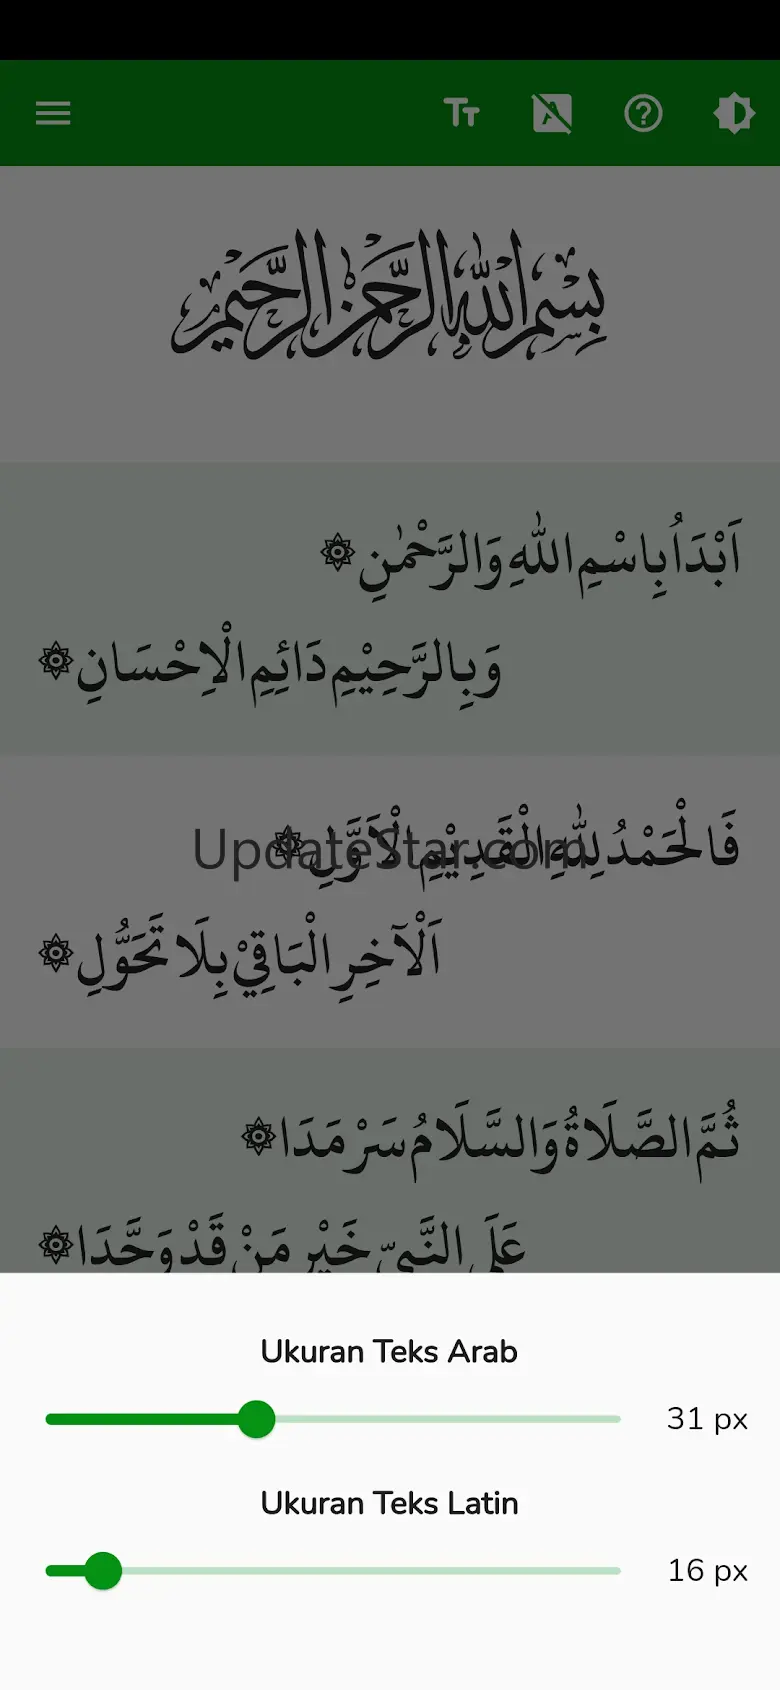 بِسْمِ اللّٰهِ الرَّحْمٰنِ الرَّحِيْمِ
اَبْدَاُ بِاسْمِ اللّٰهِ وَالرَّحْمٰنِ ۞
وَبِالرَّحِيْمِ دَائِمِ الْاِحْسَانِ ۞
فَالْحَمْدُ لِلّٰهِ الْقَدِيْمِ الْاَوَّلِ ۞
UpdateStar.com
اَلْآخِرِ الْبَاقِيْ بِلَا تَحَوُّلِ ۞
ثُمَّ الصَّلَاةُ وَالسَّلَامُ سَرْمَدَا ۞
عَلَى النَّبِيِّ خَيْرِ مَنْ قَدْ وَحَّدَا ۞
Ukuran Teks Arab
31 px
Ukuran Teks Latin
16 px